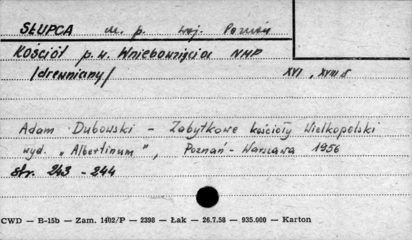 SŁUPCA m. p. woj. Poznań
Kościół p.w. Wniebowzięcia NMP
/drewniany/ XVI, XVIII
Adam Dubowski - Zabytkowe kościoły Wielkopolski
wyd. „Albertinum", Poznań - Warszawa 1956
str. 243 - 244
CWD — B-15b — Zam. 1402/P — 2398 — Łak — 26.7.58 — 935.000 — Karton